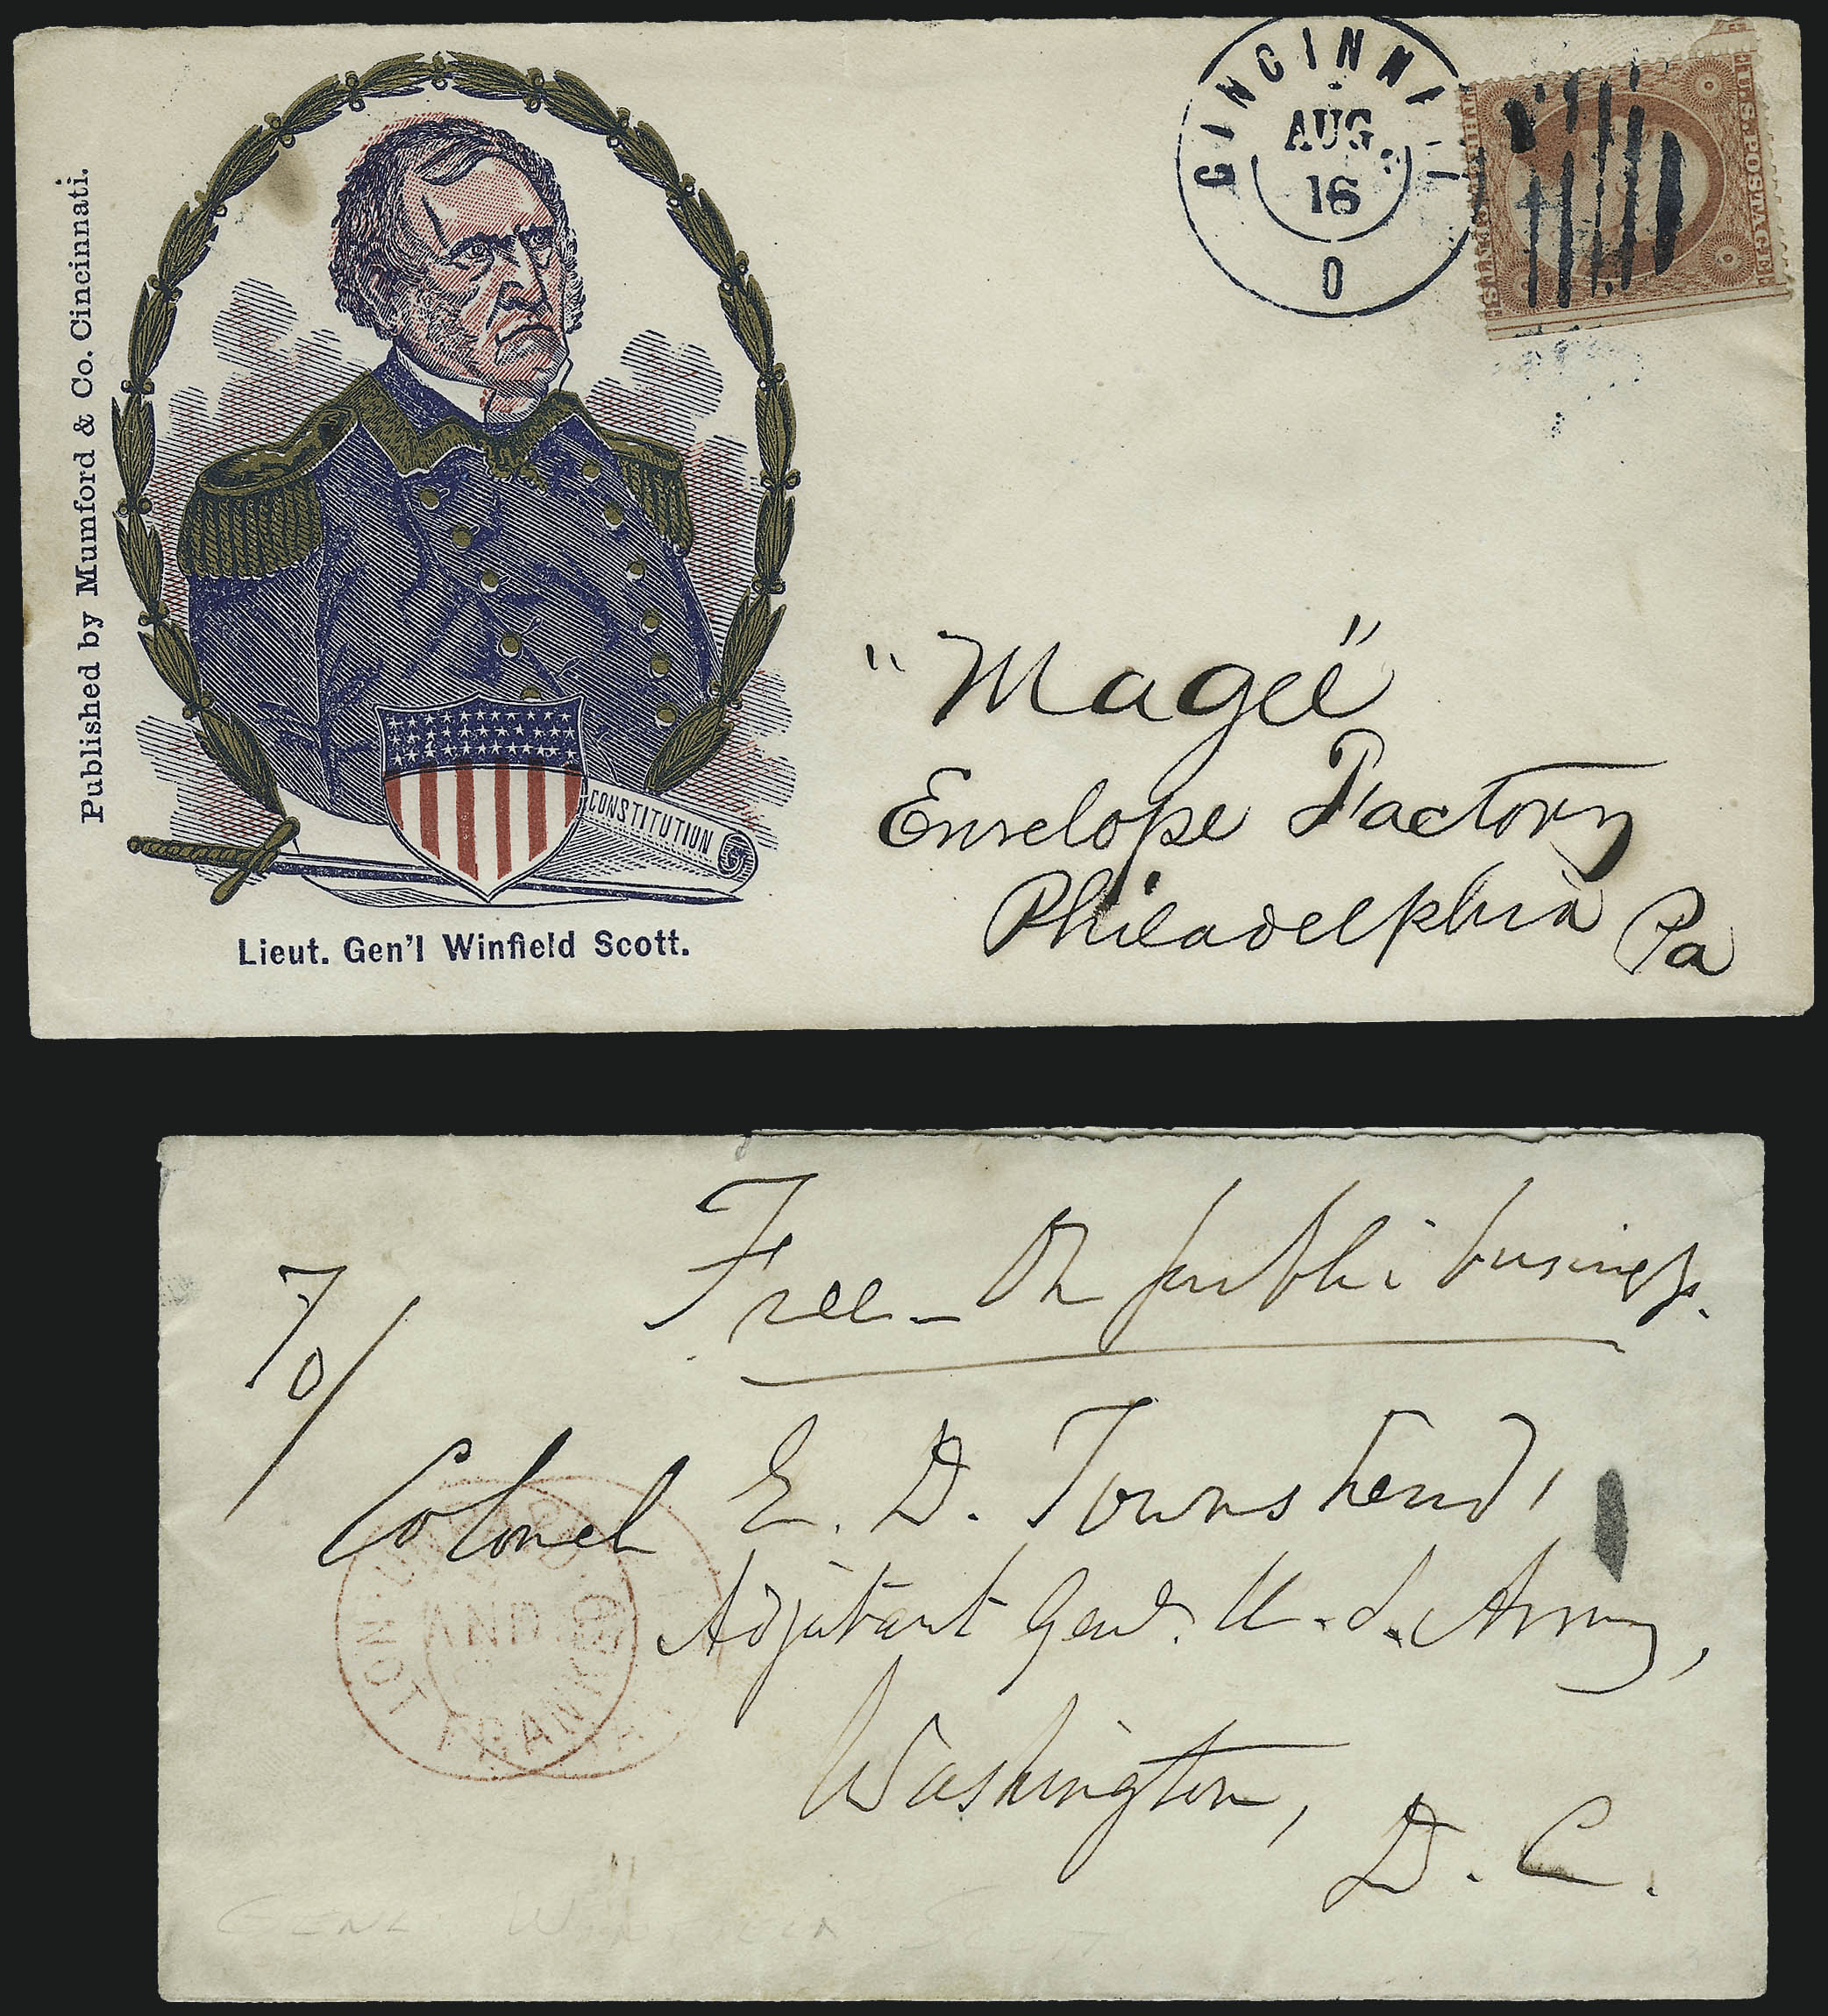 Published by Mumford & Co. Cincinnati.
CINCINNATI
AUG.
16
O
U.S. POSTAGE
THREE CENTS
CONSTITUTION
Lieut. Gen'l Winfield Scott.
"Magee"
Envelope Factory
Philadelphia Pa
Free - On public business.
To/
Colonel E. D. Townshend,
Adjutant Genl. U. S. Army,
Washington,
D. C.
AND
NOT
Genl Winfield Scott